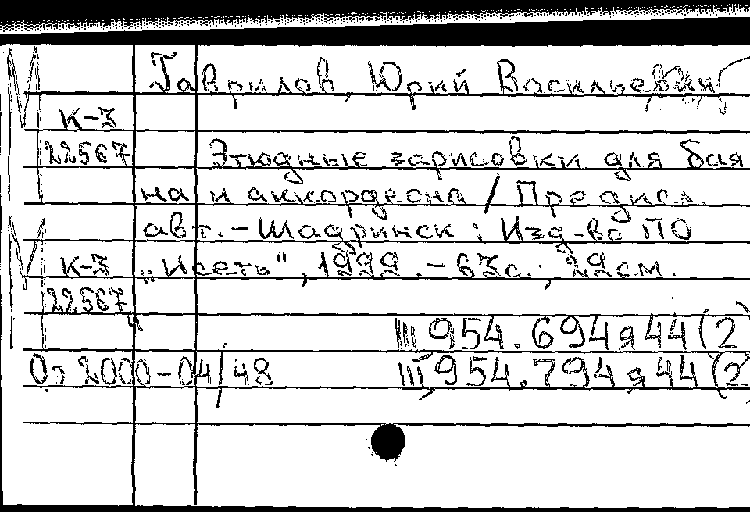 Гаврилов, Юрий Васильевич
К-3
22567 Этюдные зарисовки для бая
на и аккордеона / Предисл.
авт. - Шадринск : Изд-во ПО
К-3 „Исеть", 1999. - 63с. ; 29см.
22567
III, 954.694я44(2)
Оз 2000-04/48 III, 954.794я44(2)